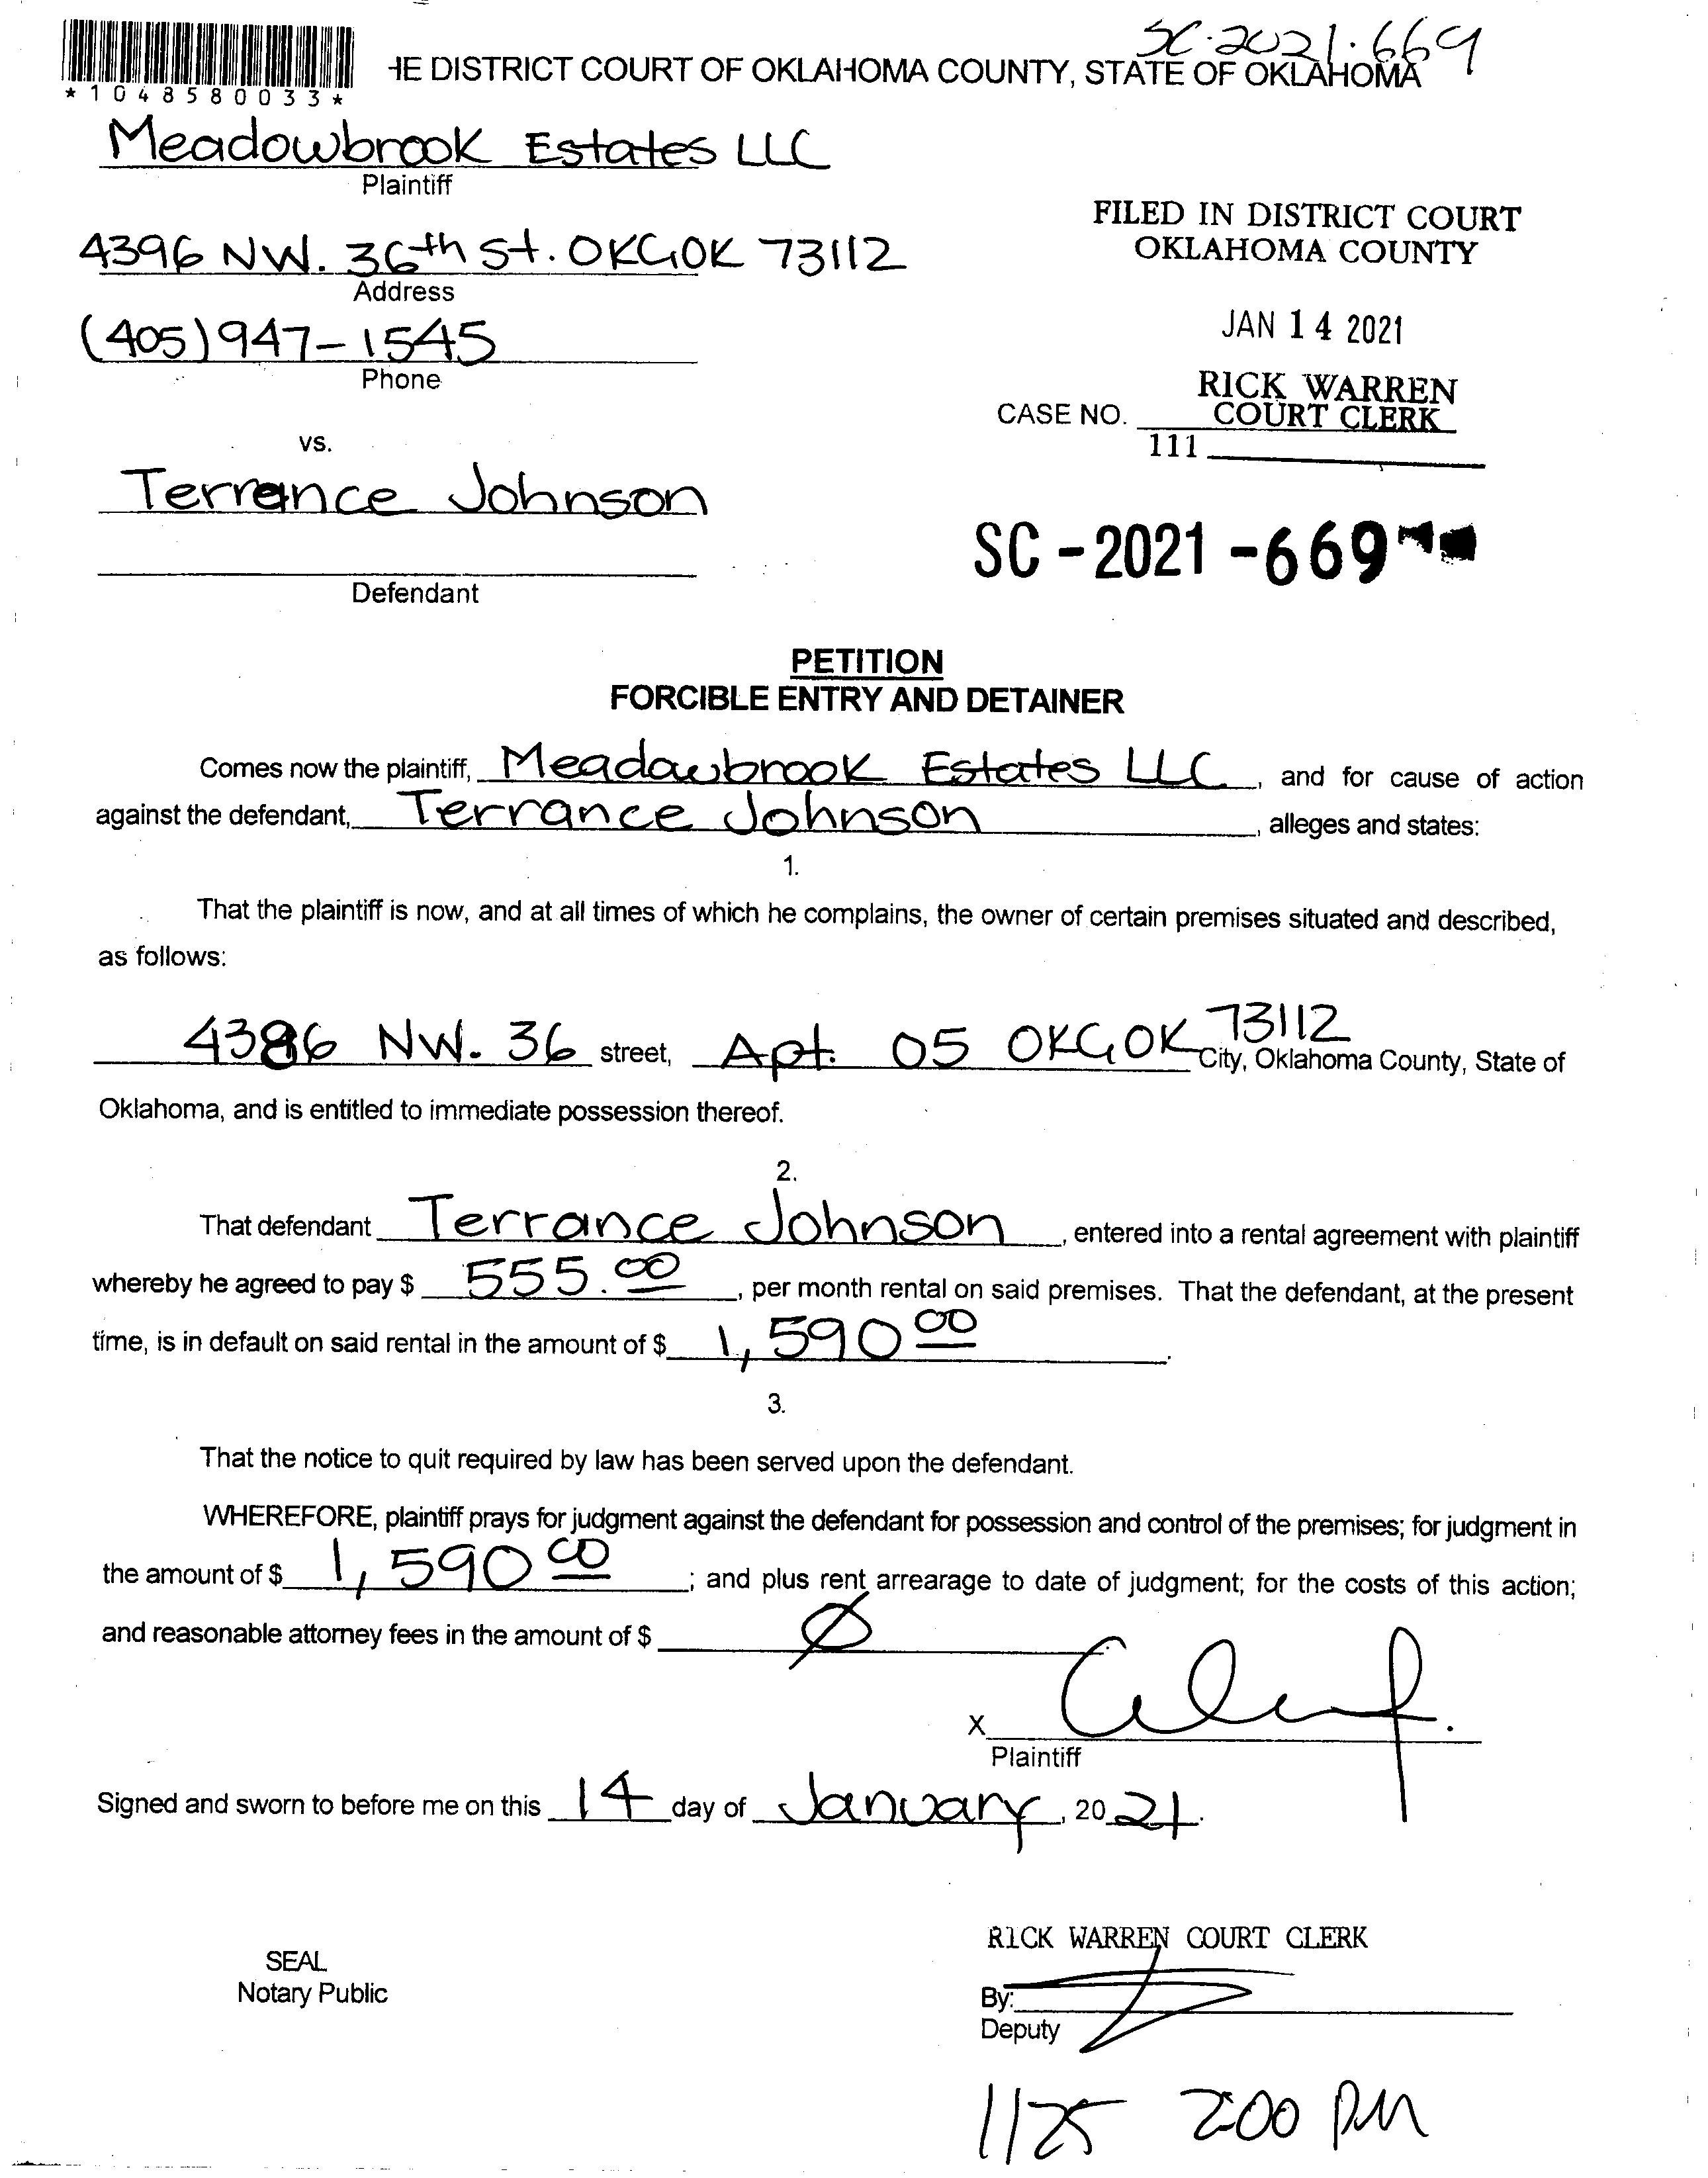 SC-2021-669
HE DISTRICT COURT OF OKLAHOMA COUNTY, STATE OF OKLAHOMA
*1048580033*
Meadowbrook Estates LLC
Plaintiff
4396 NW. 36th St. OKC, OK 73112
Address
(405) 947-1545
Phone
FILED IN DISTRICT COURT
OKLAHOMA COUNTY
JAN 14 2021
RICK WARREN
COURT CLERK
CASE NO.
111
vs.
Terrance Johnson
Defendant
SC-2021-669
PETITION
FORCIBLE ENTRY AND DETAINER
Comes now the plaintiff, Meadowbrook Estates LLC, and for cause of action
against the defendant, Terrance Johnson, alleges and states:
1.
That the plaintiff is now, and at all times of which he complains, the owner of certain premises situated and described,
as follows:
4386 NW. 36 street, Apt. 05 OKC, OK 73112 City, Oklahoma County, State of
Oklahoma, and is entitled to immediate possession thereof.
2.
That defendant Terrance Johnson, entered into a rental agreement with plaintiff
whereby he agreed to pay $ 555.00, per month rental on said premises. That the defendant, at the present
time, is in default on said rental in the amount of $ 1,590 00.
3.
That the notice to quit required by law has been served upon the defendant.
WHEREFORE, plaintiff prays for judgment against the defendant for possession and control of the premises; for judgment in
the amount of $ 1,590 00; and plus rent arrearage to date of judgment; for the costs of this action;
and reasonable attorney fees in the amount of $ Ø
X
Plaintiff
Signed and sworn to before me on this 14 day of January, 2021.
SEAL
Notary Public
RICK WARREN COURT CLERK
By:
Deputy
1/25 2:00 PM